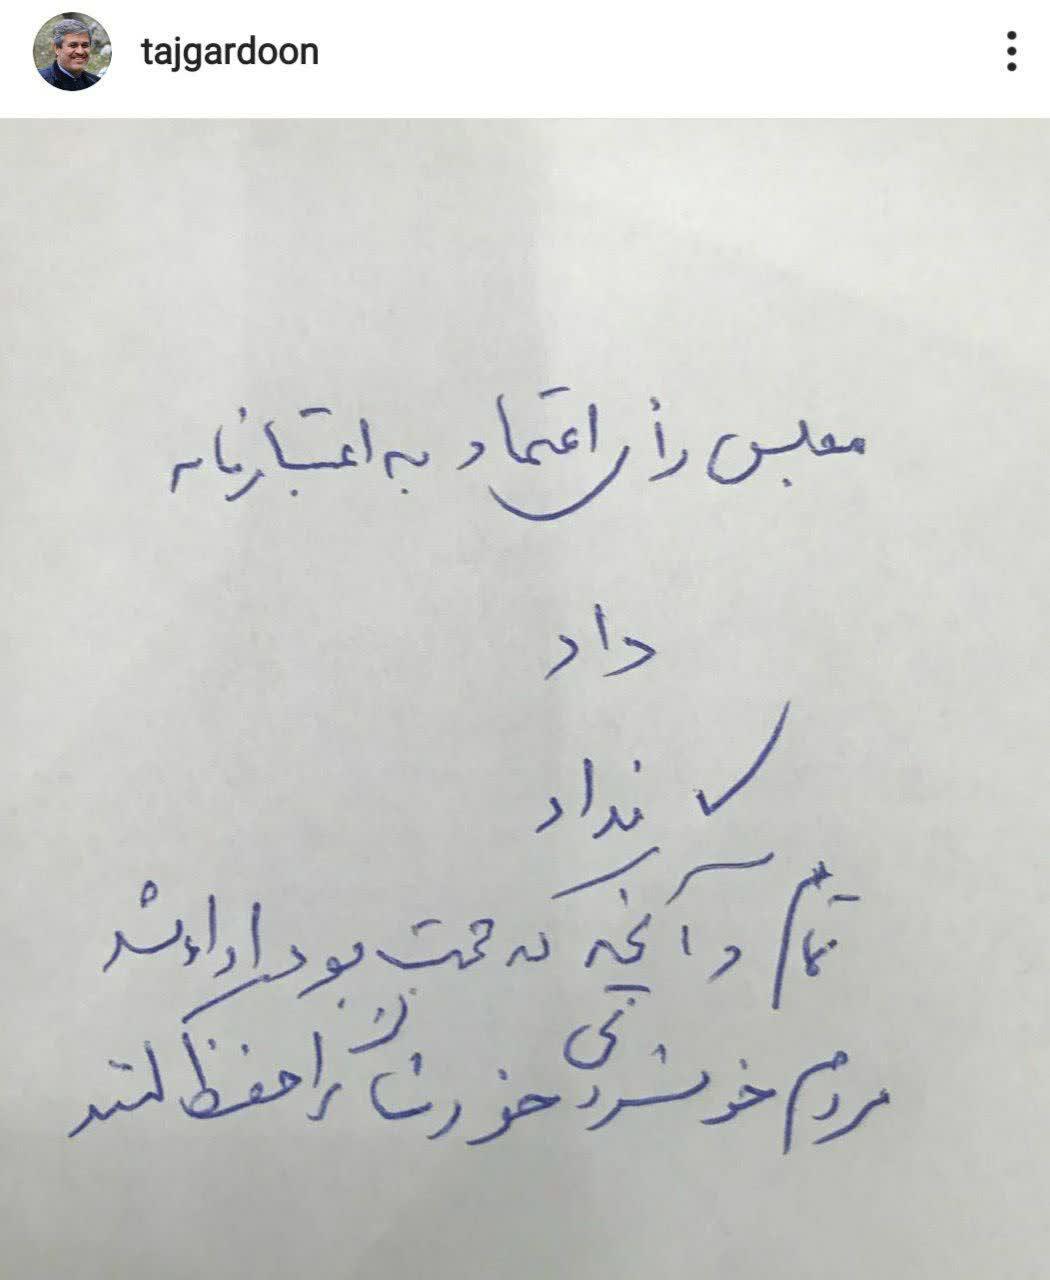 tajgardoon
مجلس رأی اعتماد به اعتبارنامه
داد
✓ نداد
تمام و آنچه که تهمت بود اداء شد
مردم خونسردی خودشان را حفظ کنند